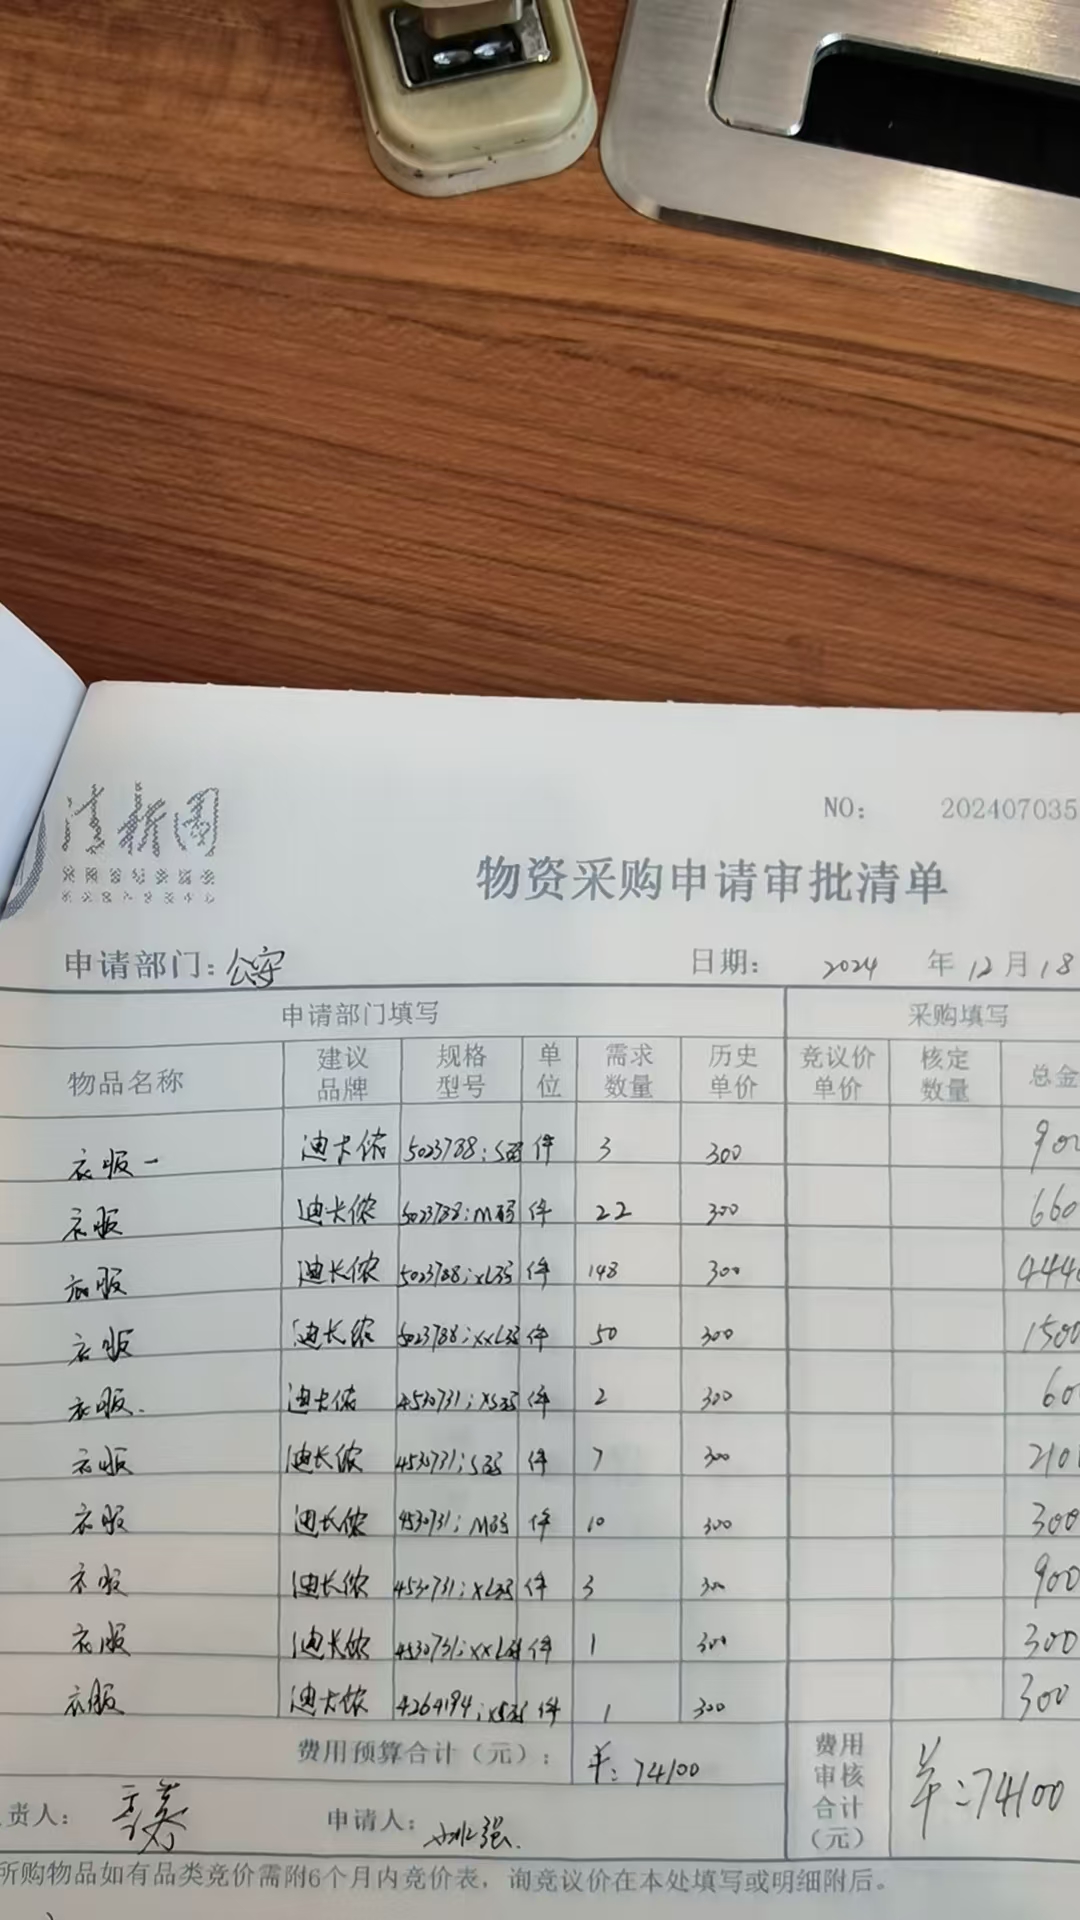 清新园
NO： 202407035
物资采购申请审批清单
申请部门：公寓 日期： 2024 年 12 月 18
申请部门填写 采购填写
物品名称 建议品牌 规格型号 单位 需求数量 历史单价 竞议价单价 核定数量 总金
衣服 迪卡侬 5023788；S码 件 3 300 900
衣服 迪卡侬 5023788；M码 件 22 300 660
衣服 迪卡侬 5023788；XL码 件 148 300 4440
衣服 迪卡侬 5023788；XXL码 件 50 300 1500
衣服 迪卡侬 4530731；XS码 件 2 300 60
衣服 迪卡侬 4530731；S码 件 7 300 210
衣服 迪卡侬 4530731；M码 件 10 300 300
衣服 迪卡侬 4530731；XL码 件 3 300 900
衣服 迪卡侬 4530731；XXL码 件 1 300 300
衣服 迪卡侬 4264194；XS码 件 1 300 300
费用预算合计（元）： ￥：74100 费用审核合计（元） ￥：74100
责人： 申请人：
所购物品如有品类竞价需附6个月内竞价表，询竞议价在本处填写或明细附后。